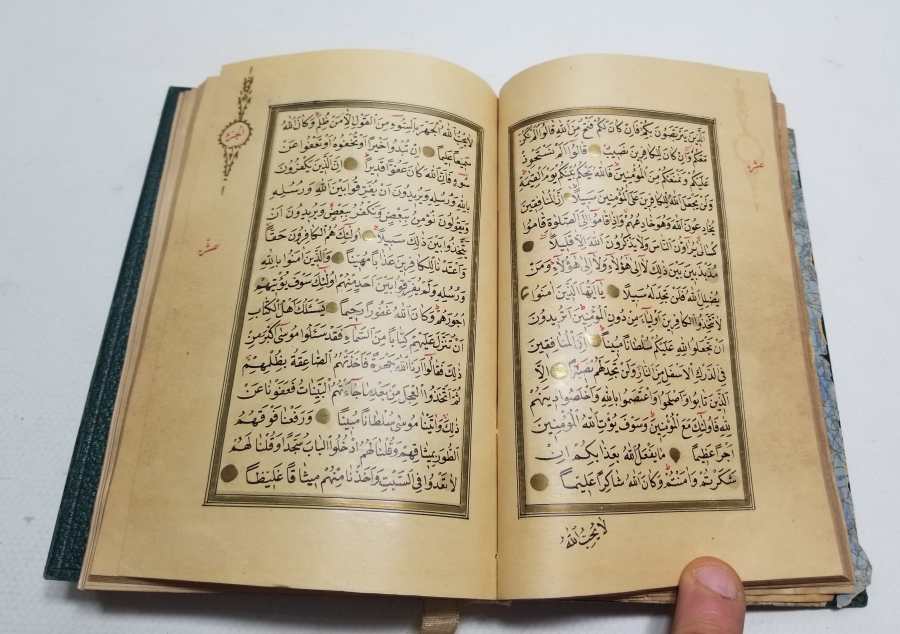 اَلَّذِينَ يَتَرَبَّصُونَ بِكُمْ فَاِنْ كَانَ لَكُمْ فَتْحٌ مِنَ اللّٰهِ قَالُوا اَلَمْ نَكُنْ
مَعَكُمْ وَاِنْ كَانَ لِلْكَافِرِينَ نَصِيبٌ قَالُوا اَلَمْ نَسْتَحْوِذْ
عَلَيْكُمْ وَنَمْنَعْكُمْ مِنَ الْمُؤْمِنِينَ فَاللّٰهُ يَحْكُمُ بَيْنَكُمْ يَوْمَ الْقِيٰمَةِ
وَلَنْ يَجْعَلَ اللّٰهُ لِلْكَافِرِينَ عَلَى الْمُؤْمِنِينَ سَبِيلًا اِنَّ الْمُنَافِقِينَ
يُخَادِعُونَ اللّٰهَ وَهُوَ خَادِعُهُمْ وَاِذَا قَامُوا اِلَى الصَّلٰوةِ قَامُوا
كُسَالٰى يُرَاؤُنَ النَّاسَ وَلَا يَذْكُرُونَ اللّٰهَ اِلَّا قَلِيلًا
مُذَبْذَبِينَ بَيْنَ ذٰلِكَ لَا اِلٰى هٰؤُلَاءِ وَلَا اِلٰى هٰؤُلَاءِ وَمَنْ
يُضْلِلِ اللّٰهُ فَلَنْ تَجِدَ لَهُ سَبِيلًا يَا اَيُّهَا الَّذِينَ اٰمَنُوا
لَا تَتَّخِذُوا الْكَافِرِينَ اَوْلِيَاءَ مِنْ دُونِ الْمُؤْمِنِينَ اَتُرِيدُونَ
اَنْ تَجْعَلُوا لِلّٰهِ عَلَيْكُمْ سُلْطَانًا مُبِينًا اِنَّ الْمُنَافِقِينَ
فِى الدَّرْكِ الْاَسْفَلِ مِنَ النَّارِ وَلَنْ تَجِدَ لَهُمْ نَصِيرًا اِلَّا
الَّذِينَ تَابُوا وَاَصْلَحُوا وَاعْتَصَمُوا بِاللّٰهِ وَاَخْلَصُوا دِينَهُمْ
لِلّٰهِ فَاُولٰئِكَ مَعَ الْمُؤْمِنِينَ وَسَوْفَ يُؤْتِ اللّٰهُ الْمُؤْمِنِينَ
اَجْرًا عَظِيمًا مَا يَفْعَلُ اللّٰهُ بِعَذَابِكُمْ اِنْ
شَكَرْتُمْ وَاٰمَنْتُمْ وَكَانَ اللّٰهُ شَاكِرًا عَلِيمًا
لَا يُحِبُّ اللّٰهُ
عشر
لَا يُحِبُّ اللّٰهُ الْجَهْرَ بِالسُّوءِ مِنَ الْقَوْلِ اِلَّا مَنْ ظُلِمَ وَكَانَ اللّٰهُ
سَمِيعًا عَلِيمًا اِنْ تُبْدُوا خَيْرًا اَوْ تُخْفُوهُ اَوْ تَعْفُوا عَنْ
سُوءٍ فَاِنَّ اللّٰهَ كَانَ عَفُوًّا قَدِيرًا اِنَّ الَّذِينَ يَكْفُرُونَ
بِاللّٰهِ وَرُسُلِهِ وَيُرِيدُونَ اَنْ يُفَرِّقُوا بَيْنَ اللّٰهِ وَرُسُلِهِ
وَيَقُولُونَ نُؤْمِنُ بِبَعْضٍ وَنَكْفُرُ بِبَعْضٍ وَيُرِيدُونَ اَنْ
يَتَّخِذُوا بَيْنَ ذٰلِكَ سَبِيلًا اُولٰئِكَ هُمُ الْكَافِرُونَ حَقًّا
وَاَعْتَدْنَا لِلْكَافِرِينَ عَذَابًا مُهِينًا وَالَّذِينَ اٰمَنُوا بِاللّٰهِ
وَرُسُلِهِ وَلَمْ يُفَرِّقُوا بَيْنَ اَحَدٍ مِنْهُمْ اُولٰئِكَ سَوْفَ يُؤْتِيهِمْ
اُجُورَهُمْ وَكَانَ اللّٰهُ غَفُورًا رَحِيمًا يَسْئَلُكَ اَهْلُ الْكِتَابِ
اَنْ تُنَزِّلَ عَلَيْهِمْ كِتَابًا مِنَ السَّمَاءِ فَقَدْ سَئَلُوا مُوسٰى اَكْبَرَ مِنْ
ذٰلِكَ فَقَالُوا اَرِنَا اللّٰهَ جَهْرَةً فَاَخَذَتْهُمُ الصَّاعِقَةُ بِظُلْمِهِمْ
ثُمَّ اتَّخَذُوا الْعِجْلَ مِنْ بَعْدِ مَا جَاءَتْهُمُ الْبَيِّنَاتُ فَعَفَوْنَا عَنْ
ذٰلِكَ وَاٰتَيْنَا مُوسٰى سُلْطَانًا مُبِينًا وَرَفَعْنَا فَوْقَهُمُ
الطُّورَ بِمِيثَاقِهِمْ وَقُلْنَا لَهُمُ ادْخُلُوا الْبَابَ سُجَّدًا وَقُلْنَا لَهُمْ
لَا تَعْدُوا فِى السَّبْتِ وَاَخَذْنَا مِنْهُمْ مِيثَاقًا غَلِيظًا
عشر